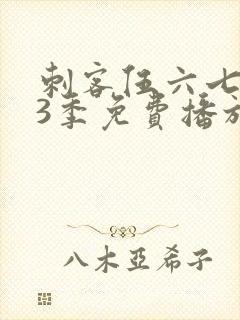 刺客伍六七
3季免費播放
八木亞希子